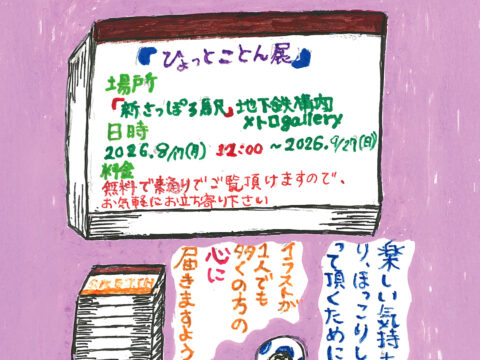 『ひょっとことん展』
場所
『新さっぽろ駅』地下鉄構内
メトロgallery
日時
2026.8/17(月) 12:00 〜2026.9/27(日)
料金
無料で素通りでご覧頂けますので、
お気軽にお立ち寄り下さい
楽しい気持ち
り、ほっこりし
って頂くために
イラストが
1人でも
多くの方の
心に
届きますよう
SKETCH